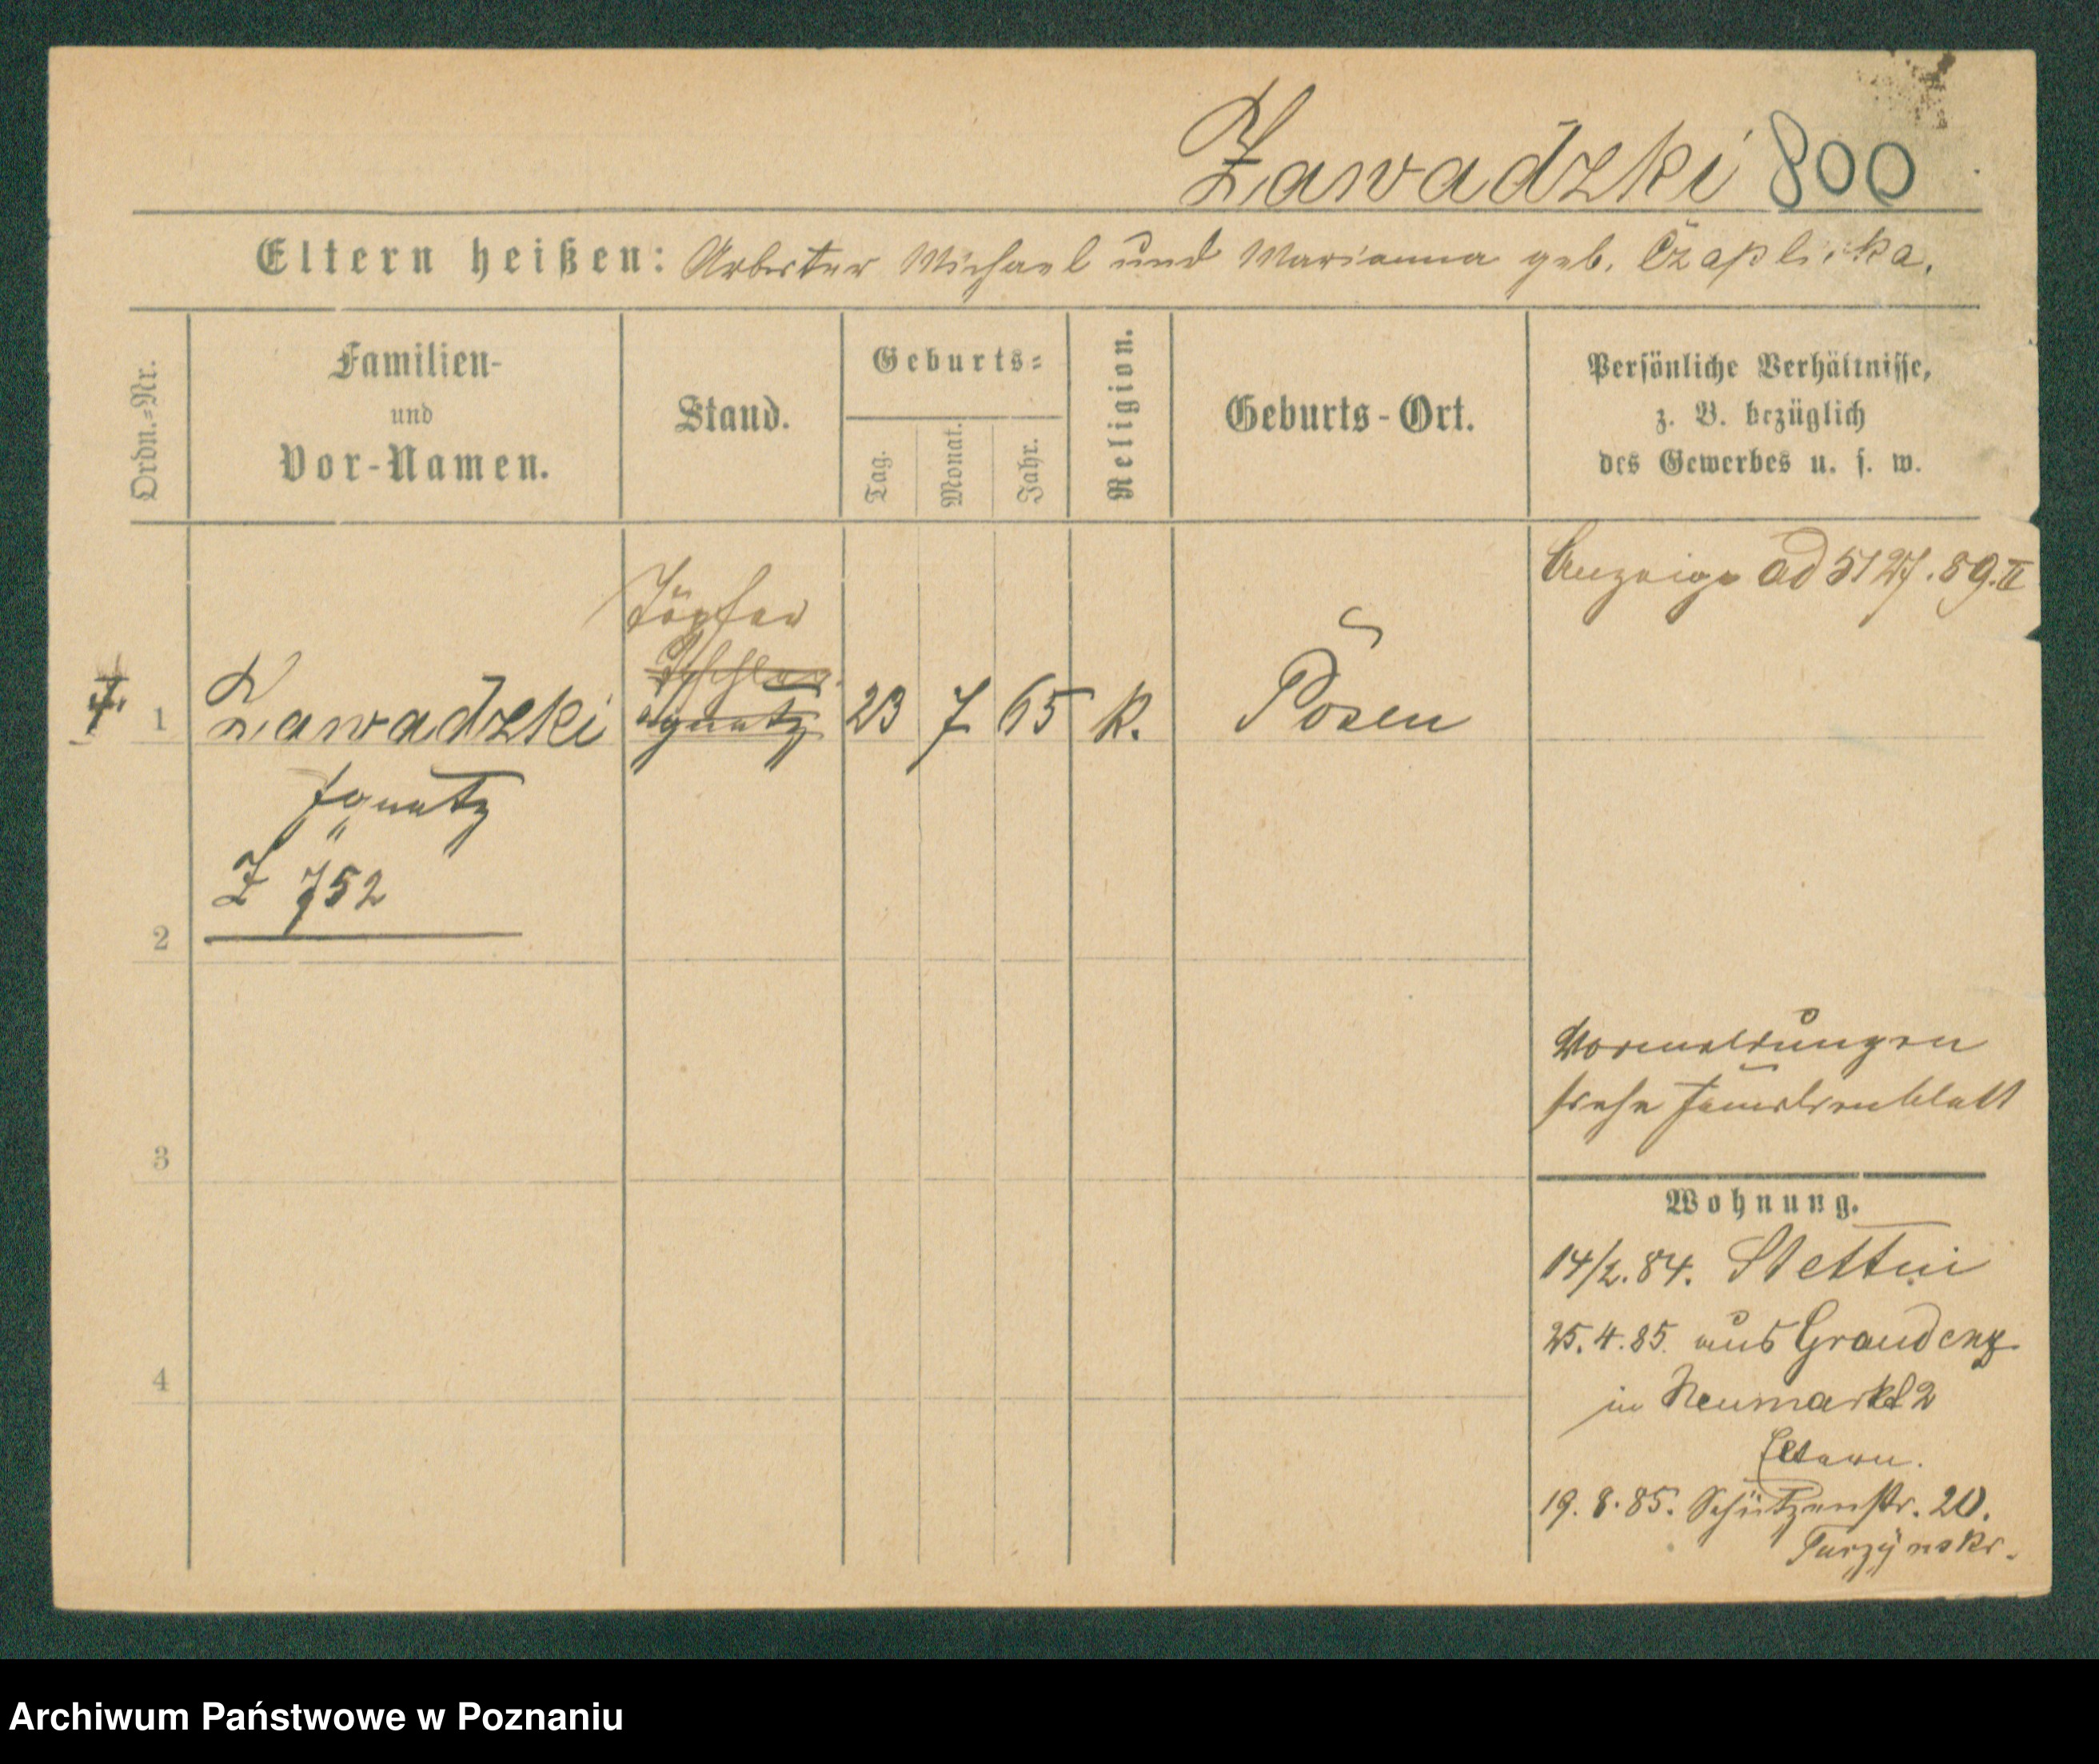 Zawadzki 800
Eltern heißen: Arbeiter Michael und Marianna geb. Czaplicka.
Ordn.=Nr.
Familien-
und
Vor-Namen.
Stand.
Geburts=
Tag.
Monat.
Jahr.
Religion.
Geburts-Ort.
Persönliche Verhältnisse,
z. B. bezüglich
des Gewerbes u. s. w.
Anzeige ad 5127.89.II
Töpfer
1 Zawadzki Ignatz 23 7 65 k. Posen
Ignatz
Z 752
2
Vormeldungen
siehe Familienblatt
3
Wohnung.
14/2.84. Stettin
25.4.85. aus Graudenz
in Neumarkt 2
Eltern.
4
19.8.85. Schützenstr. 20.
Turzynski.
Archiwum Państwowe w Poznaniu